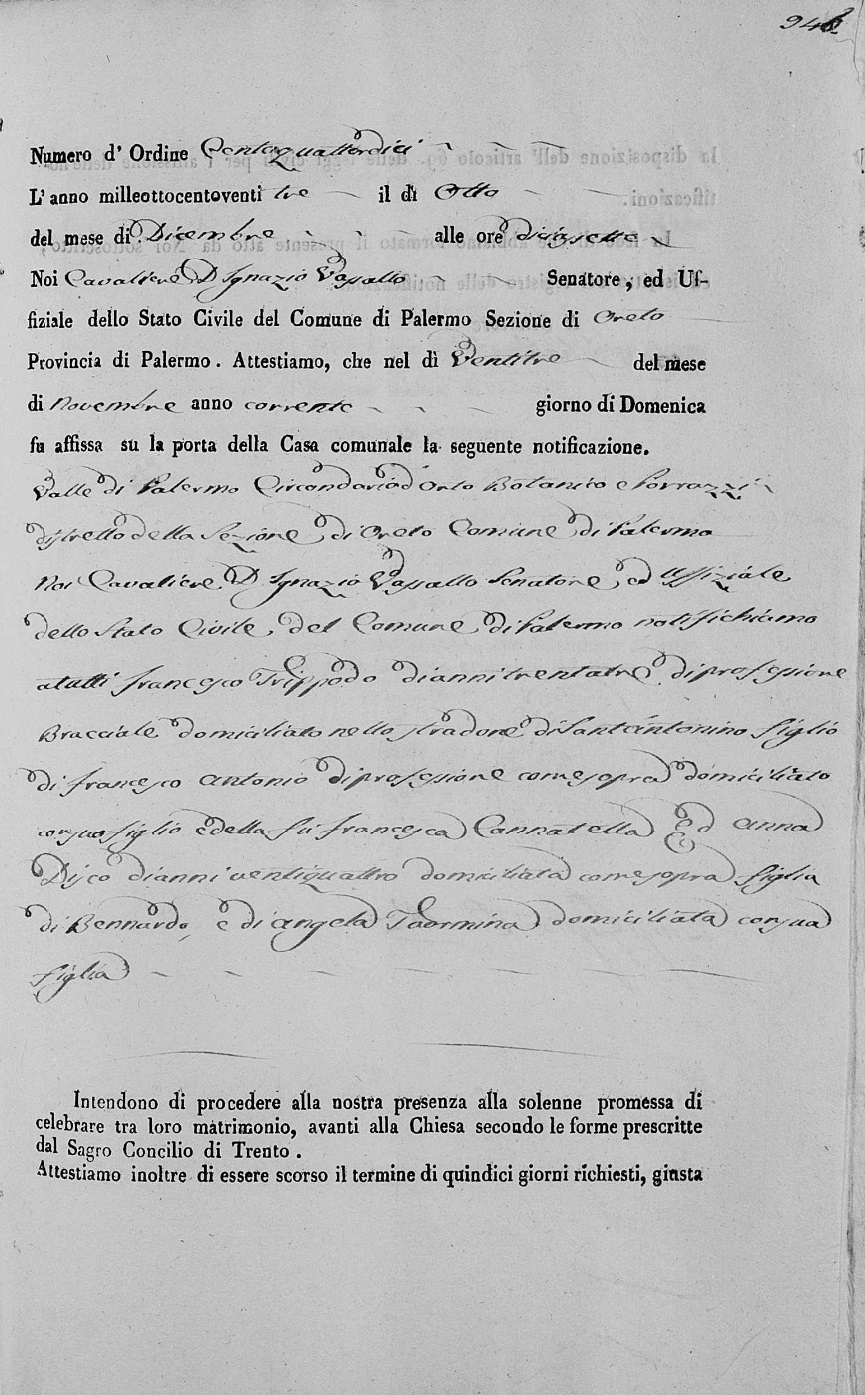 Numero d' Ordine Centoquattordici
L' anno milleottocentoventi tre il dì Otto
del mese di Dicembre alle ore diciasette
Noi Cavaliere D Ignazio Vassallo Senatore, ed Uf-
fiziale dello Stato Civile del Comune di Palermo Sezione di Oreto
Provincia di Palermo. Attestiamo, che nel dì Ventitre del mese
di Novembre anno corrente giorno di Domenica
fu affissa su la porta della Casa comunale la seguente notificazione.
Valle di Palermo Circondario d'Orto Botanico e Porrazzi
distretto della Sezione di Oreto Comune di Palermo
Noi Cavaliere D Ignazio Vassallo Senatore, ed Uffiziale
dello Stato Civile, del Comune di Palermo notifichiamo
a tutti francesco Trippodo di anni trentatre di professione
Bracciale domiciliato nello stradone di Sant'antonino figlio
di francesco antonio di professione come sopra domiciliato
con suo figlio e della fù francesca Cannatella Ed anna
Disco di anni ventiquattro domiciliata come sopra figlia
di Bennardo, e di angela Taormina domiciliata con sua
figlia
Intendono di procedere alla nostra presenza alla solenne promessa di
celebrare tra loro matrimonio, avanti alla Chiesa secondo le forme prescritte
dal Sagro Concilio di Trento.
Attestiamo inoltre di essere scorso il termine di quindici giorni richiesti, giusta